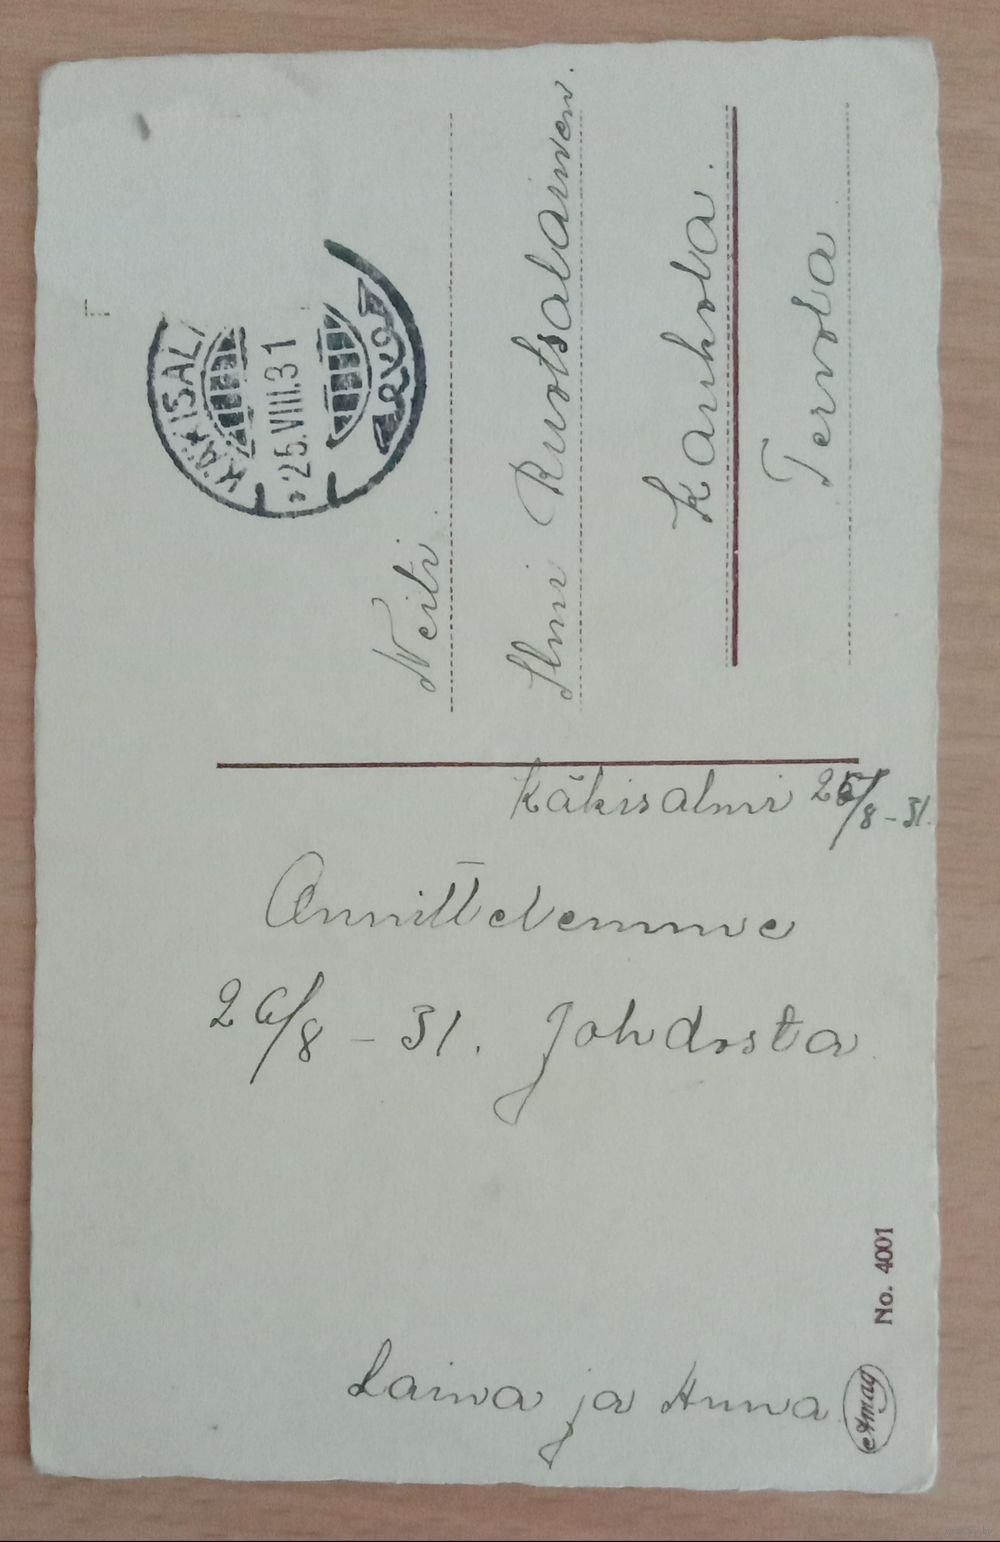 KÄKISAL
25.VIII.31
Neiti
Ilmi Ruotsalainen.
Karhola.
Tervola
Käkisalmi 25/8-31.
Onnittelemme
26/8 - 31. Johdosta
Laina ja Anna
No. 4001
Amag